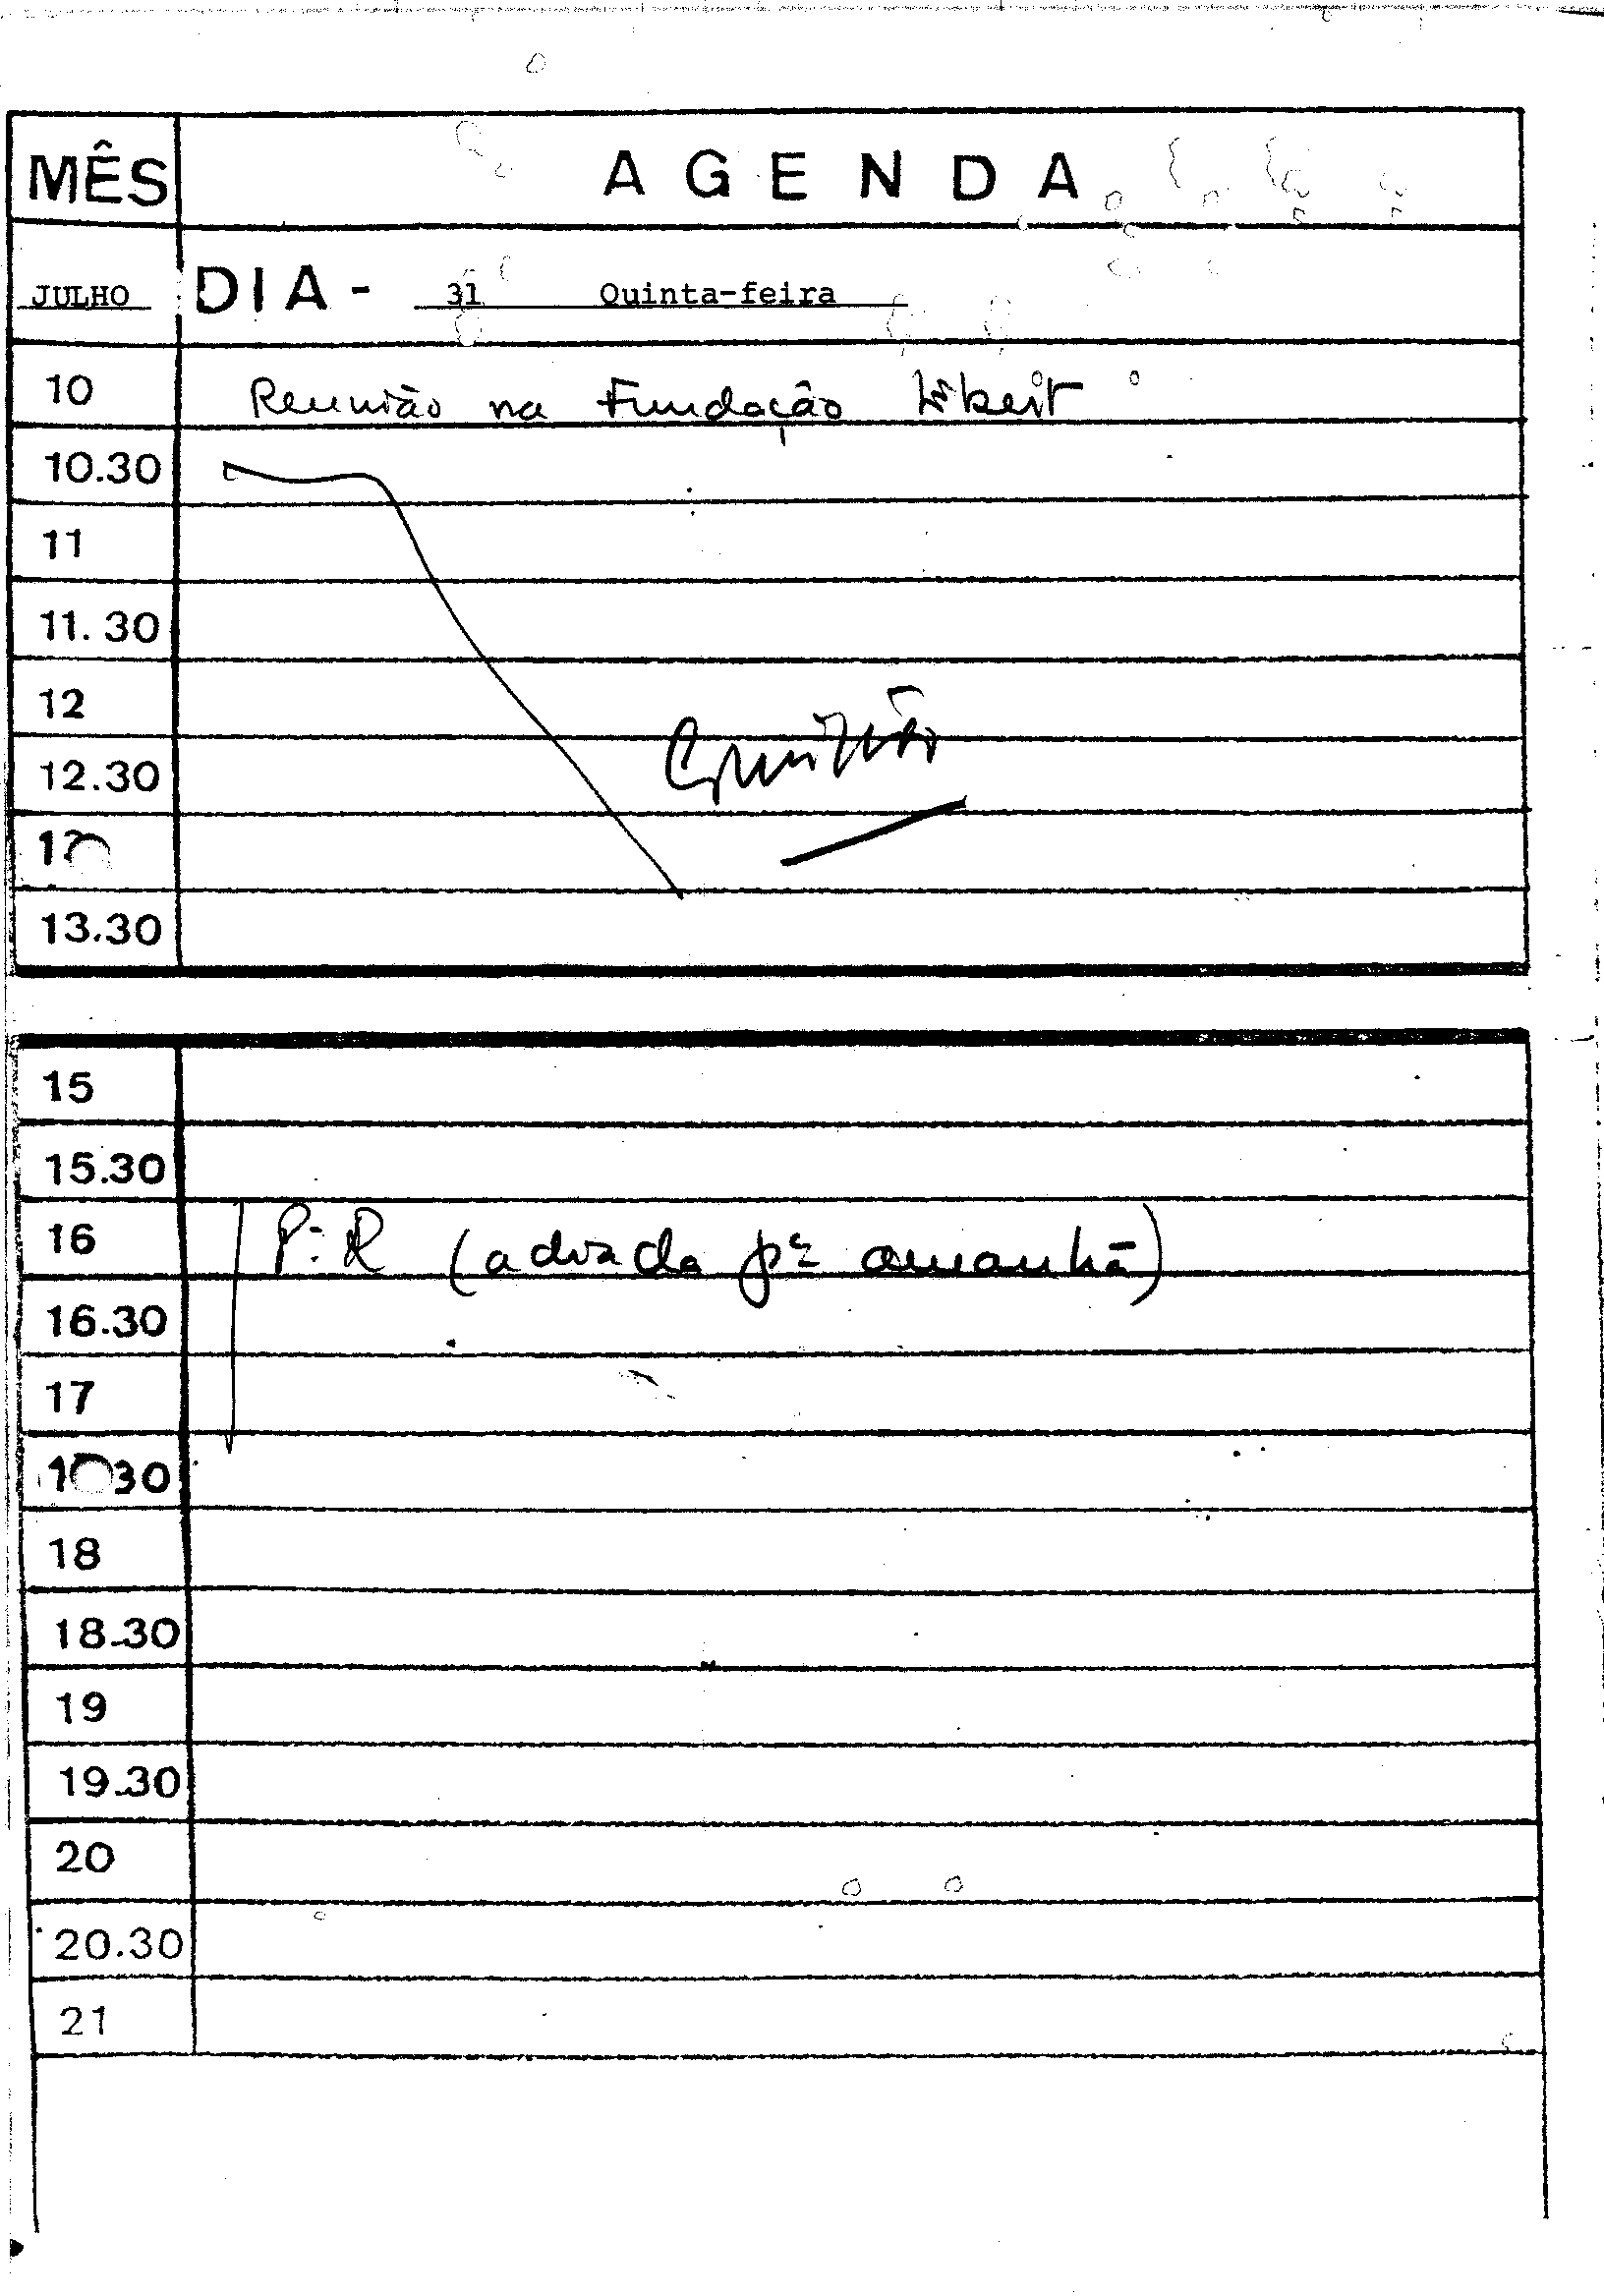 MÊS AGENDA
JULHO DIA - 31 Quinta-feira
10 Reunião na Fundação
10.30
11
11.30
12
12.30
13.30
15
15.30
16 P.R (adiada pª amanhã)
16.30
17
18
18.30
19
19.30
20
20.30
21